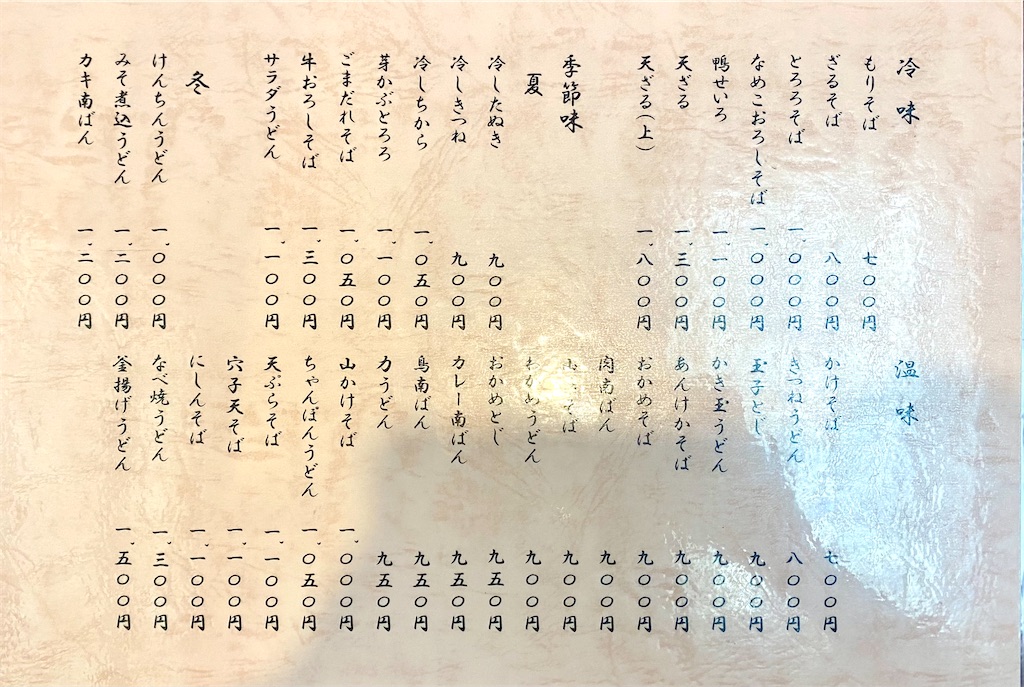 冷味
もりそば 七〇〇円
ざるそば 八〇〇円
とろろそば 一、〇〇〇円
なめこおろしそば 一、〇〇〇円
鴨せいろ 一、一〇〇円
天ざる 一、三〇〇円
天ざる(上) 一、八〇〇円
季節味
夏
冷したぬき 九〇〇円
冷しきつね 九〇〇円
冷しちから 一、〇五〇円
芽かぶとろろ 一、一〇〇円
ごまだれそば 一、〇五〇円
牛おろしそば 一、三〇〇円
サラダうどん 一、一〇〇円
冬
けんちんうどん 一、〇〇〇円
みそ煮込うどん 一、二〇〇円
カキ南ばん 一、二〇〇円
温味
かけそば 七〇〇円
きつねうどん 八〇〇円
玉子とじ 九〇〇円
かき玉うどん 九〇〇円
あんけかそば 九〇〇円
おかめそば 九〇〇円
肉南ばん 九〇〇円
九〇〇円
わかめうどん 九〇〇円
おかめとじ 九五〇円
カレー南ばん 九五〇円
鳥南ばん 九五〇円
力うどん 九五〇円
山かけそば 一、〇〇〇円
ちゃんぽんうどん 一、〇五〇円
天ぷらそば 一、一〇〇円
穴子天そば 一、一〇〇円
にしんそば 一、一〇〇円
なべ焼うどん 一、三〇〇円
釜揚げうどん 一、五〇〇円